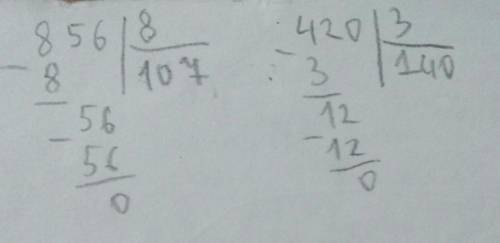 856 8
- 8 107
- 56
56
0
- 420 3
3 140
12
- 12
0